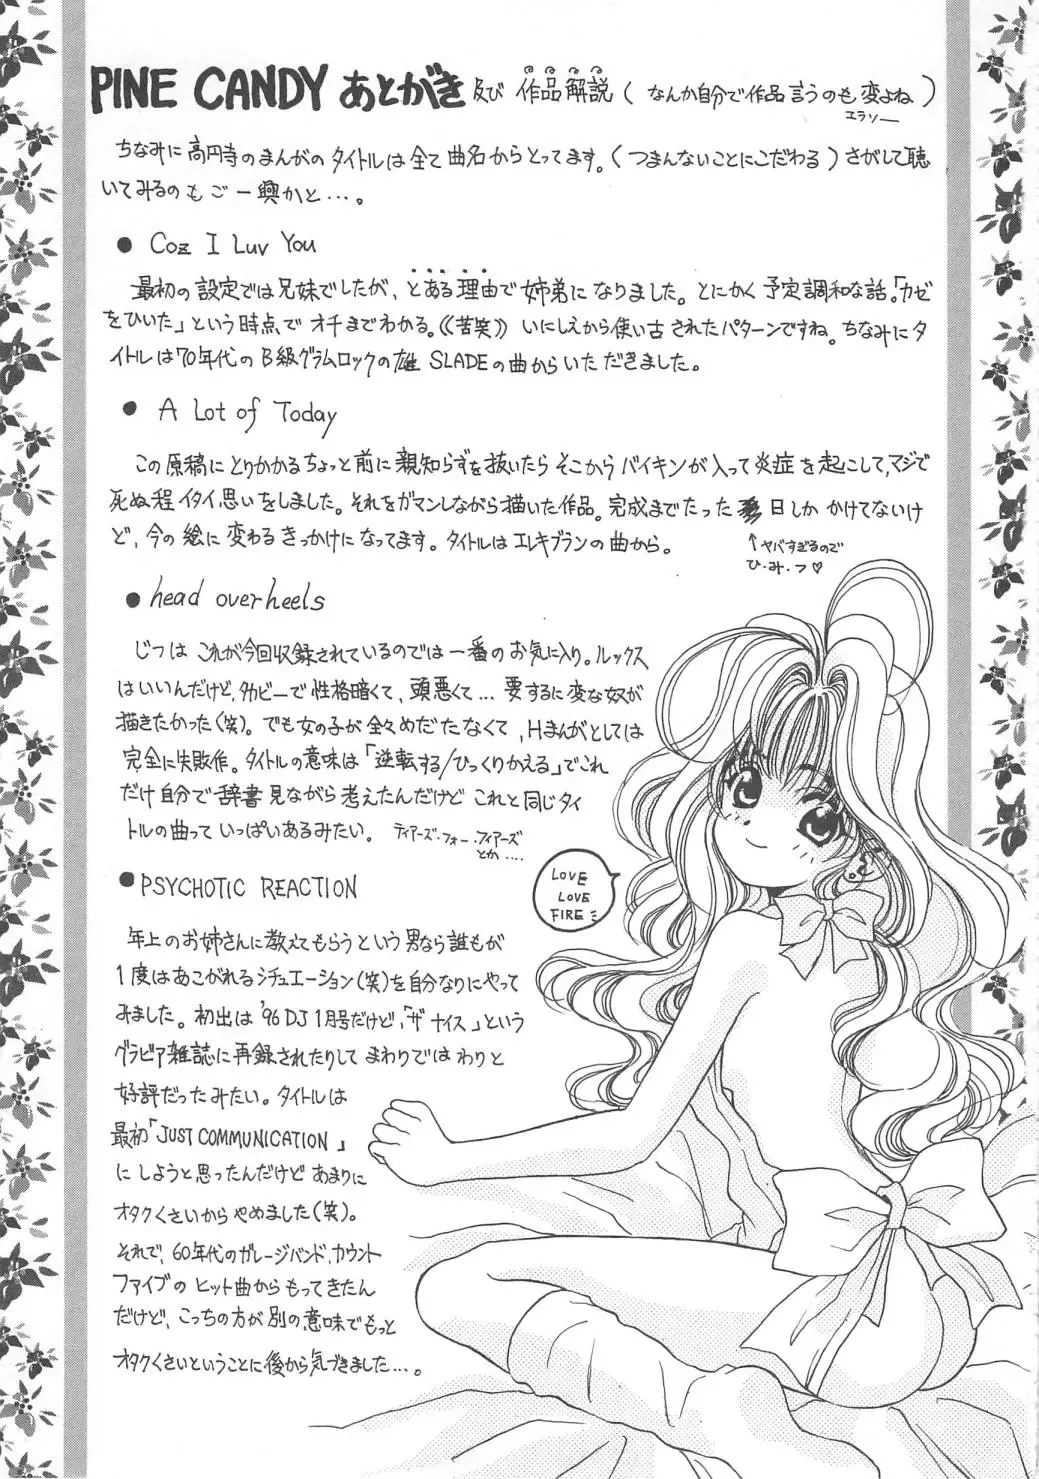 PINE CANDY あとがき 及び 作品解説 ( なんか自分で作品言うのも変よね )
エラソー
ちなみに高円寺のまんがのタイトルは全て曲名からとってます。(つまんないことにこだわる)さがして聴
いてみるのもご一興かと…。
● Coz I Luv You
最初の設定では兄妹でしたが、とある理由で姉弟になりました。とにかく予定調和な話。「カゼ
をひいた」という時点でオチまでわかる。《苦笑》いにしえから使い古されたパターンですね。ちなみにタ
イトルは70年代のB級グラムロックの雄 SLADEの曲からいただきました。
● A Lot of Today
この原稿にとりかかるちょっと前に親知らずを抜いたらそこからバイキンが入って炎症を起こして、マジで
死ぬ程イタイ思いをしました。それをガマンしながら描いた作品。完成までたった 日しかかけてないけ
ど、今の絵に変わるきっかけになってます。タイトルはエレキブランの曲から。
↑ヤバすぎるので
ひ・み・つ♡
● head over heels
じつはこれが今回収録されているのでは一番のお気に入り。ルックス
はいいんだけど、タカビーで性格暗くて、頭悪くて…要するに変な奴が
描きたかった(笑)。でも女の子が全々めだたなくて、Hまんがとしては
完全に失敗作。タイトルの意味は「逆転する/ひっくりかえる」でこれ
だけ自分で辞書見ながら考えたんだけどこれと同じタイ
トルの曲っていっぱいあるみたい。 ティアーズ・フォー・フィアーズ
とか….
● PSYCHOTIC REACTION
年上のお姉さんに教えてもらうという男なら誰もが
1度はあこがれるシチュエーション(笑)を自分なりにやって
みました。初出は'96 DJ 1月号だけど、「ザ ナイス」という
グラビア雑誌に再録されたりしてまわりではわりと
好評だったみたい。タイトルは
最初「JUST COMMUNICATION」
にしようと思ったんだけどあまりに
オタクくさいからやめました(笑)。
それで、60年代のガレージバンド、カウント
ファイブのヒット曲からもってきたん
だけど、こっちの方が別の意味でもっと
オタクくさいということに後から気づきました…。
LOVE
LOVE
FIRE